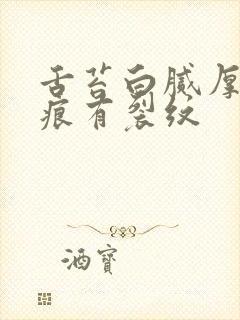 舌苔白腻厚
痕有裂纹
酒寶